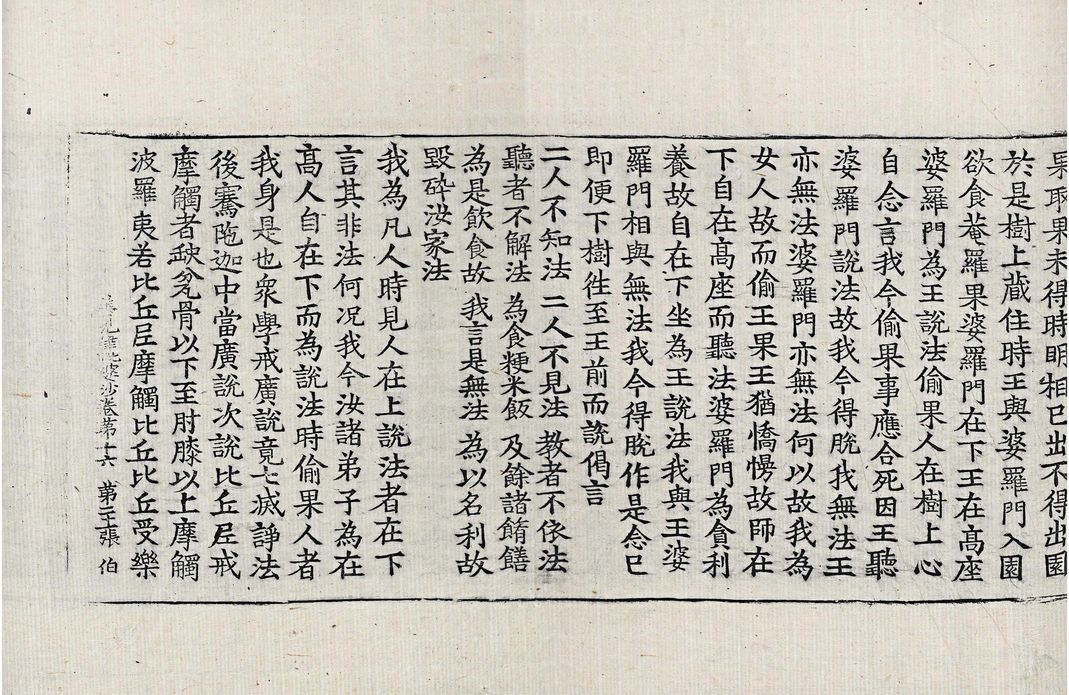 果取果未得時明相已出不得出園
於是樹上藏住時王與婆羅門入園
欲食菴羅果婆羅門在下王在髙座
婆羅門為王說法偷果人在樹上心
自念言我今偷果事應合死因王聽
婆羅門說法故我今得脫我無法王
亦無法婆羅門亦無法何以故我為
女人故而偷王果王猶憍慢故師在
下自在髙座而聽法婆羅門為貪利
養故自在下坐為王說法我與王婆
羅門相與無法我今得脫作是念已
即便下樹徃至王前而說偈言
二人不知法 二人不見法 教者不依法
聽者不解法 為食粳米飯 及餘諸餚饍
為是飲食故 我言是無法 為以名利故
毀碎汝家法
我為凡人時見人在上說法者在下
言其非法何況我今汝諸弟子為在
髙人自在下而為說法時偷果人者
我身是也衆學戒廣說竟七滅諍法
後騫陁迦中當廣說次說比丘尼戒
摩觸者缺盆骨以下至肘膝以上摩觸
波羅夷若比丘尼摩觸比丘比丘受樂
善見毗婆沙卷第十六 第二十張 伯